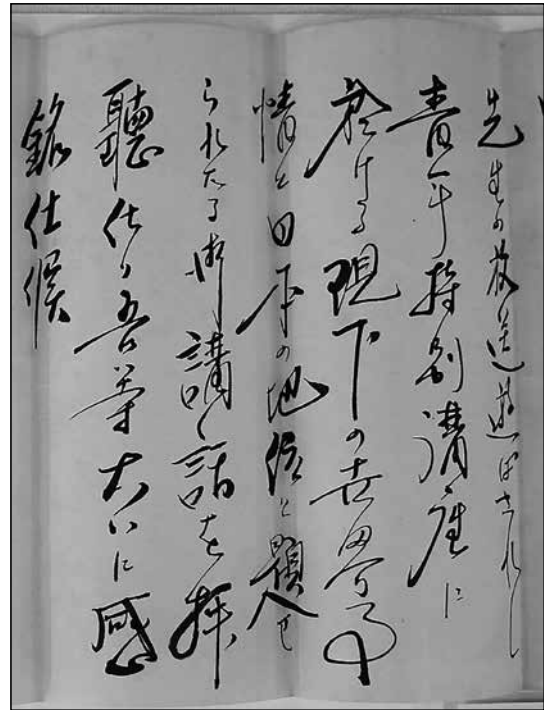 先生の放送遊ばされし
青年特別講座に
於ける現下の世界事
情と日本の地位と題せ
られたる御講話を拝
聴仕り吾等大いに感
銘仕候